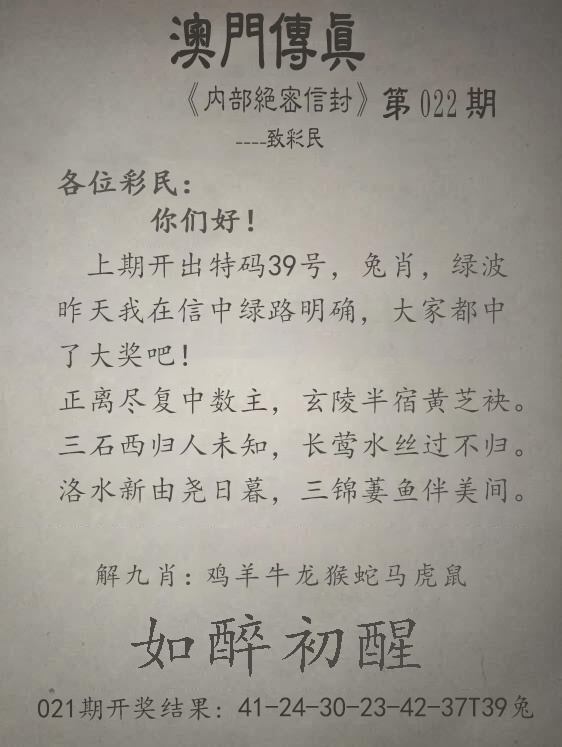 澳門傳真
《内部絕密信封》第022期
----致彩民
各位彩民：
你们好！
上期开出特码39号，兔肖，绿波
昨天我在信中绿路明确，大家都中
了大奖吧！
正离尽复中数主，玄陵半宿黄芝袂。
三石西归人未知，长莺水丝过不归。
洛水新由尧日暮，三锦萋鱼伴美间。
解九肖：鸡羊牛龙猴蛇马虎鼠
如醉初醒
021期开奖结果：41-24-30-23-42-37T39兔